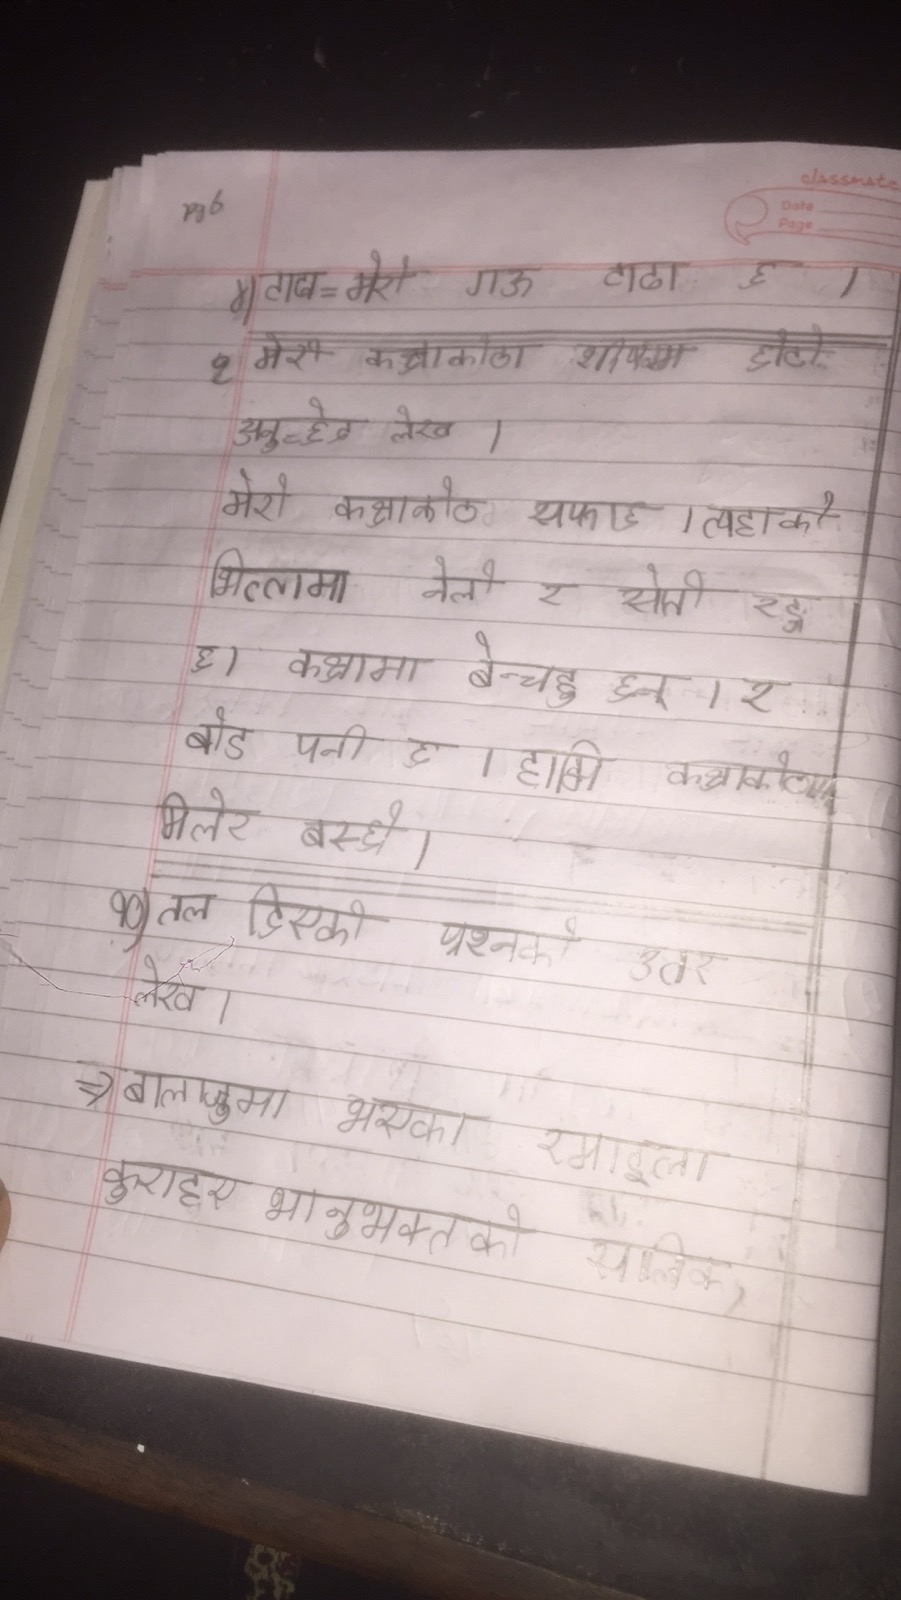 pg6
classmate
Date
Page
४) टाढा = मेरो गऊ टाढा छ ।
९ मेरो कक्षाकोठा शीर्षकमा छोटो
अनुच्छेद लेख ।
मेरो कक्षाकोठा सफा छ । त्यहाको
भित्तामा नेलो र सेतो रङ्ग
छ । कक्षामा बेन्चहु छन् । र
बोड पनी छ । हामि कक्षाकोठामा
मिलेर बस्छौ ।
१०) तल दिएको प्रश्नको उतर
लेख ।
⇒ बालाजुमा भएका रमाइला
कुराहर भानुभक्तको सालिक,